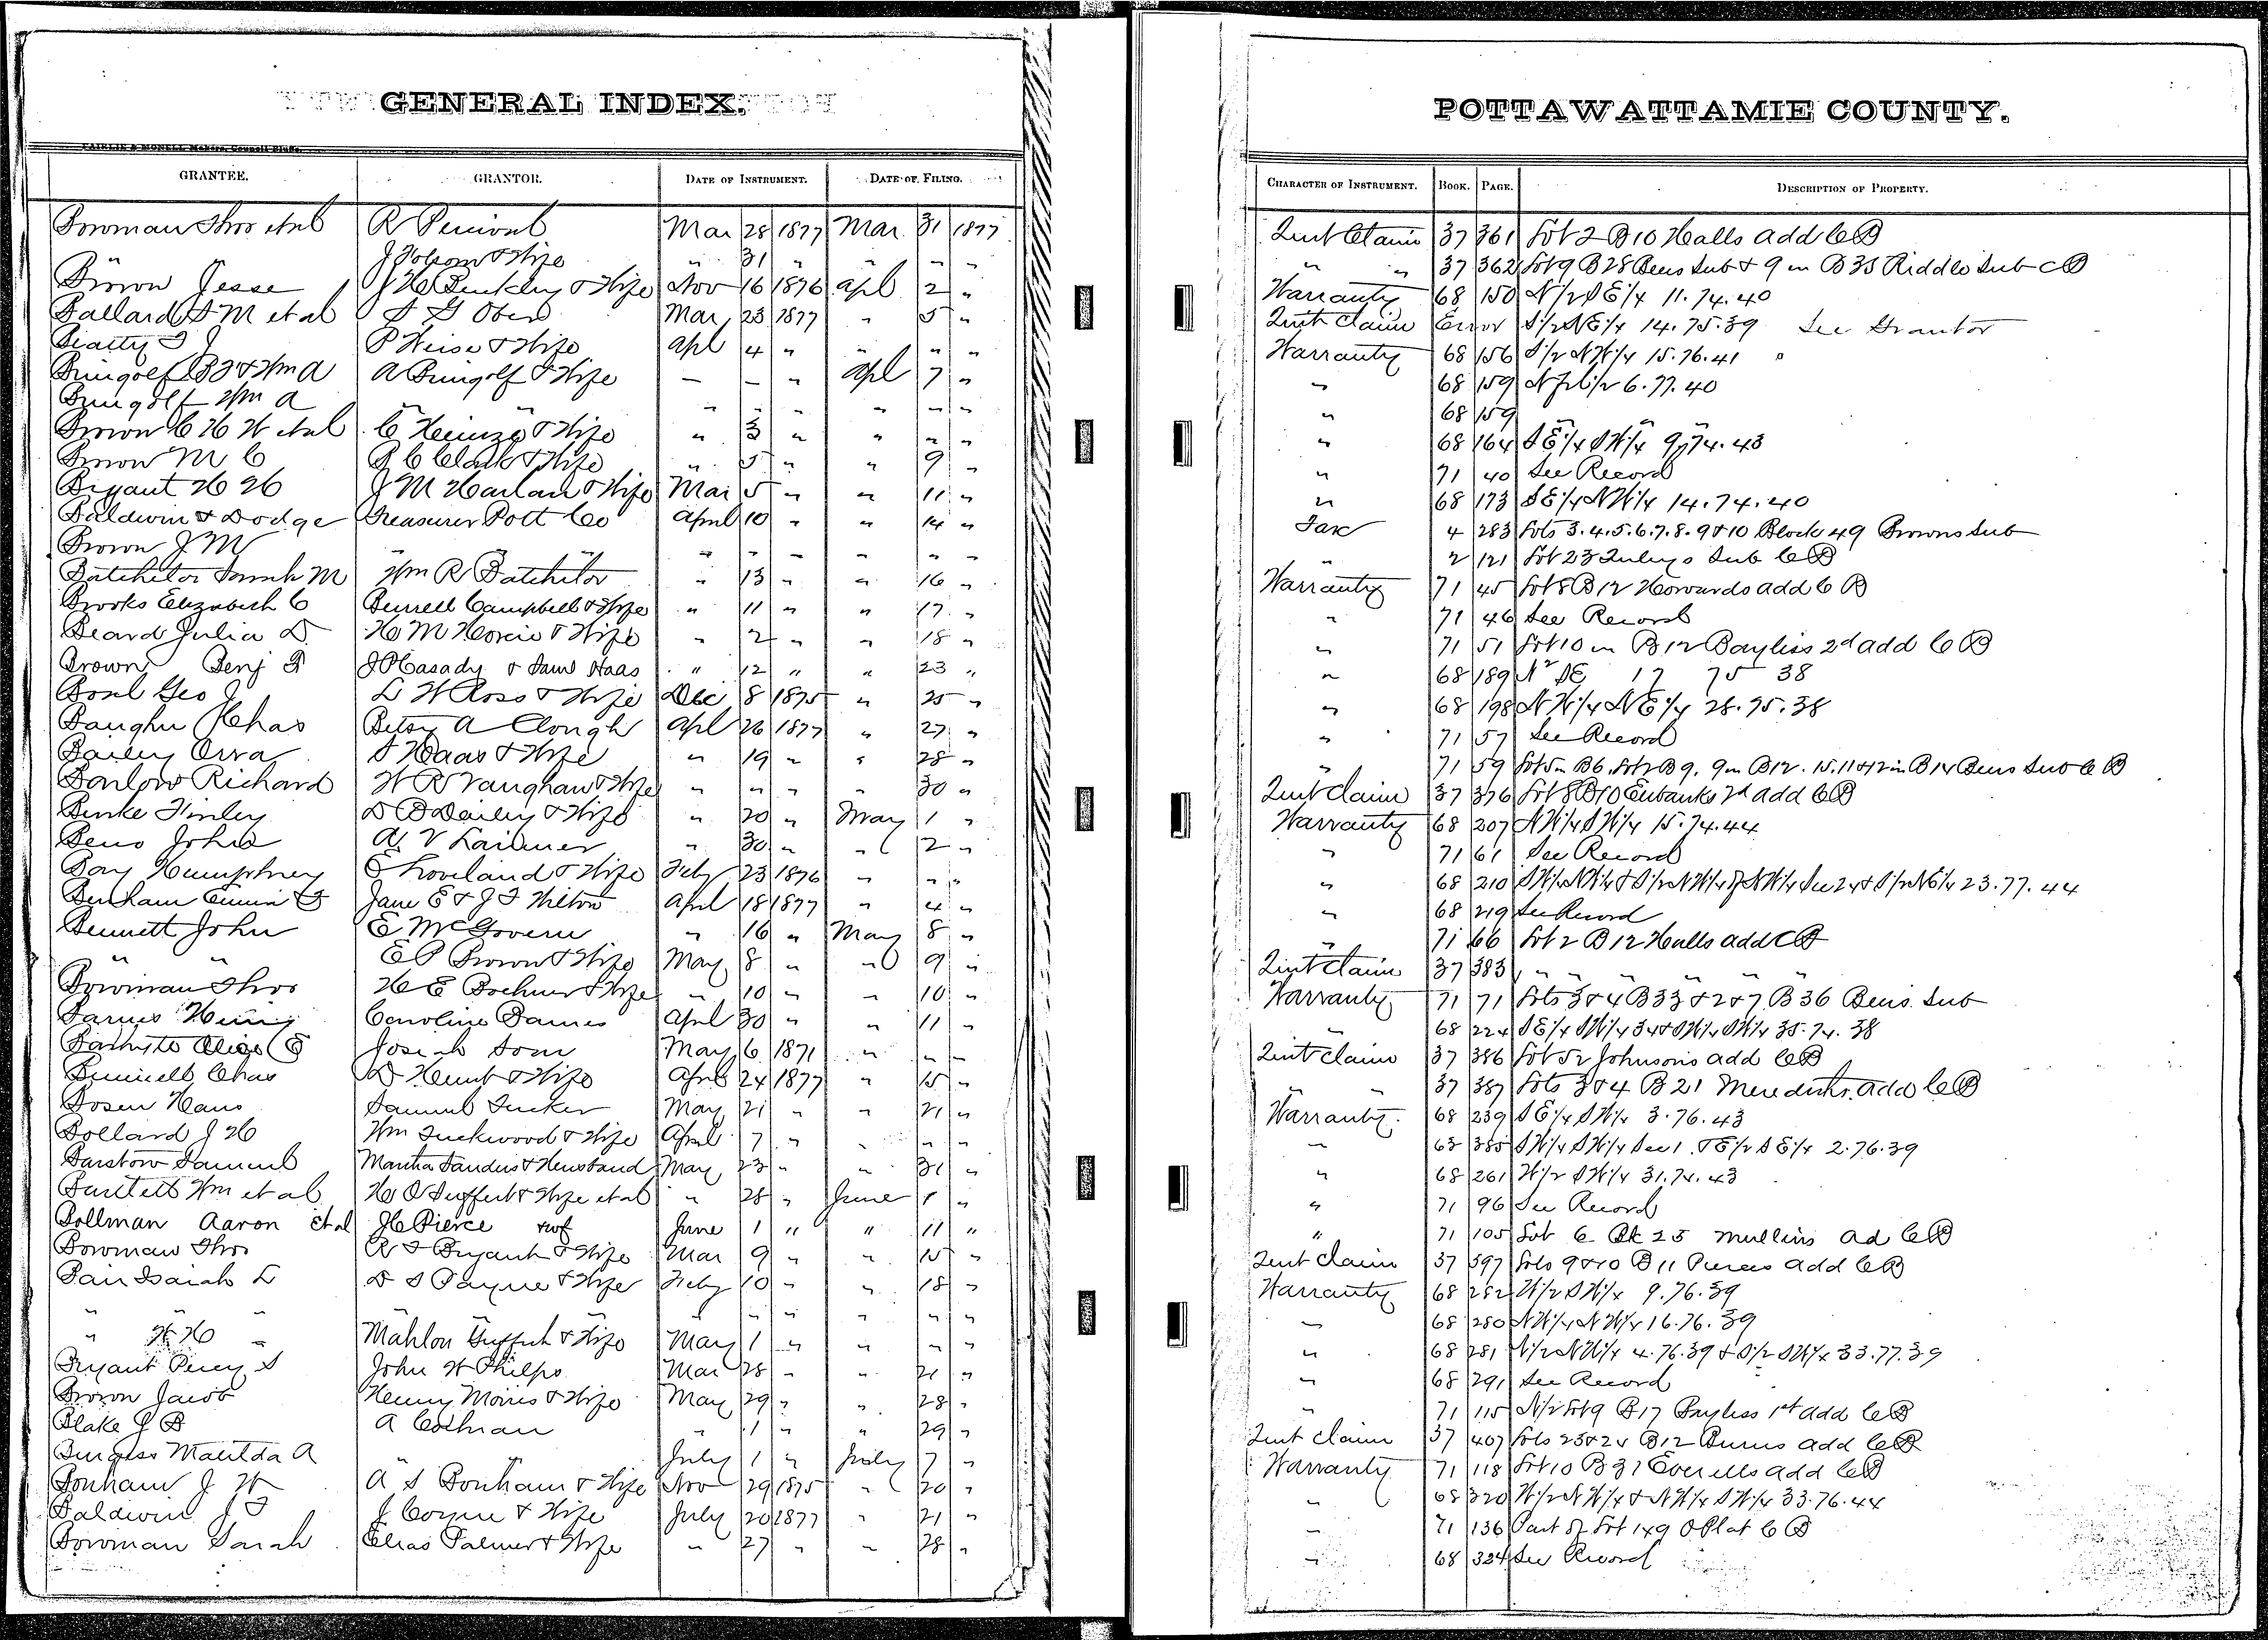 GENERAL INDEX.
FAIRLIE & MONELL, Makers, Council Bluffs.
GRANTEE. GRANTOR. DATE OF INSTRUMENT. DATE OF FILING.
Bowman Thos et al R Percival Mar 28 1877 Mar 31 1877
" J Folsom & Wife " 31 " " " "
Brown Jesse J H Binkley & Wife Nov 16 1876 Apl 2 "
Ballard S M et al S G Ober Mar 23 1877 " 5 "
Beatty P Weise & Wife Apl 4 " " " "
& Wm A A & Wife — — " Apl 7 "
Wm A " " " " " " "
Brown C H W et al C Heinze & Wife " 3 " " " "
Brown M C & Wife " 5 " " 9 "
Bryant H H J M Harlan & Wife Mar 5 " " 11 "
Baldwin & Dodge Treasurer Pott Co April 10 " " 14 "
Brown J M " " " " " " "
Batchelor Sarah M Wm R Batchelor " 13 " " 16 "
Brooks Elizabeth C Burrell Campbell & Wife " 11 " " 17 "
Beard Julia D. H M & Wife " 2 " " 18 "
Brown Benj F J P Casady & Saml Haas " 12 " " 23 "
Geo L W Ross & Wife Dec 8 1875 " 25 "
Chas Betsy A Clough Apl 26 1877 " 27 "
Bailey Orra S Haas & Wife " 19 " " 28 "
Barlow Richard W R Vaughan & Wife " " " " 30 "
Burke Finley D B Dailey & Wife " 20 " May 1 "
Beno John A. V Larimer " 30 " " 2 "
Humphrey E Loveland & Wife Feby 23 1876 " " "
Jane E & J F Wilton April 18 1877 " 4 "
Bennett John E McGovern " 16 " May 8 "
" " E P Brown & Wife May 8 " " 9 "
Bowman Thos H E Boehner & Wife " 10 " " 10 "
Barnes Caroline Barnes April 30 " " 11 "
Josiah May 6 1871 " " "
Chas D Hunt & Wife April 24 1877 " 15 "
Bosen Hans Samuel Tucker May 21 " " 21 "
Bollard J H Wm Tuckwood & Wife April 7 " " " "
Barstow Samuel Martha Sanders & Husband May 23 " " 31 "
Bartlett Wm et al H O Seiffert & Wife et al " 28 " June 1 "
Bollman Aaron et al J C Pierce & wf June 1 " " 11 "
Bowman Thos R T Bryant & Wife Mar 9 " " 15 "
Bair Isaiah L D S Payne & Wife Feby 10 " " 18 "
" " " " " " " " " "
" W H " Mahlon & Wife May 1 " " " "
Bryant Percy S John W Phelps Mar 28 " " 21 "
Brown Jacob Henry Morris & Wife May 29 " " 28 "
Blake J B A Cochran " 1 " " 29 "
Burgess Matilda A " July 1 " July 7 "
Bonham J W A S Bonham & Wife Nov 29 1875 " 20 "
Baldwin J T J Coyne & Wife July 20 1877 " 21 "
Bowman Sarah Elias Palmer & Wife " 27 " " 28 "
POTTAWATTAMIE COUNTY.
CHARACTER OF INSTRUMENT. BOOK. PAGE. DESCRIPTION OF PROPERTY.
Quit Claim 37 361 Lot 2 B 10 Halls add C B
" " 37 362 Lot 9 B 28 Beers Sub & 9 in B 35 Riddle Sub C B
Warranty 68 150 N 1/2 S E 1/4 11. 74. 40
Quit Claim Error S 1/2 N E 1/4 14. 75. 39 See Grantor
Warranty 68 156 S 1/2 N W 1/4 15. 76. 41 "
" 68 159 6. 77. 40
" 68 159 " "
" 68 164 S E 1/4 S W 1/4 9. 74. 43
" 71 40 See Record
" 68 173 S E 1/4 N W 1/4 14. 74. 40
Tax 4 283 Lots 3. 4. 5. 6. 7. 8. 9 & 10 Block 49 Browns Sub
" 2 121 Lot 23 Sub C B
Warranty 71 45 Lot 8 B 12 Howards add C B
" 71 46 See Record
" 71 51 Lot 10 in B 12 Bayliss 2d add C B
" 68 189 N 2 SE 17 75 38
" 68 198 N W 1/4 N E 1/4 28. 75. 38
" 71 57 See Record
" 71 59 Lot 5 in B 6. Lot 2 B 9. 9 in B 12. 15. 11 & 12 in B 14 Beers Sub C B
Quit Claim 37 376 Lot 8 B 10 Eubanks 2d add C B
Warranty 68 207 N W 1/4 S W 1/4 15. 74. 44
" 71 61 See Record
" 68 210 S W 1/4 N W 1/4 & S 1/2 N W 1/4 of N W 1/4 Sec 24 & S 1/2 N E 1/4 23. 77. 44
" 68 219 See Record
" 71 66 Lot 2 B 12 Halls add C B
Quit Claim 37 383 " " " " " "
Warranty 71 71 Lots 3 & 4 B 33 & 2 & 7 B 36 Beers Sub
" 68 224 S E 1/4 S W 1/4 34 & S W 1/4 S W 1/4 35. 74. 38
Quit Claim 37 386 Lot 52 Johnsons add C B
" " 37 387 Lots 3 & 4 B 21 Merediths add C B
Warranty 68 239 S E 1/4 S W 1/4 3. 76. 43
" 63 385 S W 1/4 S W 1/4 Sec 1. & E 1/2 S E 1/4 2. 76. 39
" 68 261 W 1/2 S W 1/4 31. 74. 43
" 71 96 See Record
" 71 105 Lot 6 Bk 25 Mullins ad C B
Quit Claim 37 397 Lots 9 & 10 B 11 Pierces add C B
Warranty 68 282 W 1/2 S W 1/4 9. 76. 39
" 68 280 N W 1/4 N W 1/4 16. 76. 39
" 68 281 N 1/2 N W 1/4 4. 76. 39 & S 1/2 S W 1/4 33. 77. 39
" 68 291 See Record
" 71 115 N 1/2 Lot 9 B 17 Bayliss 1st add C B
Quit Claim 37 407 Lots 23 & 24 B 12 Burns add C B
Warranty 71 118 Lot 10 B 31 Everetts add C B
" 68 320 W 1/2 N W 1/4 & N W 1/4 S W 1/4 33. 76. 44
" 71 136 Part of Lot 149 O Plat C B
" 68 324 See Record